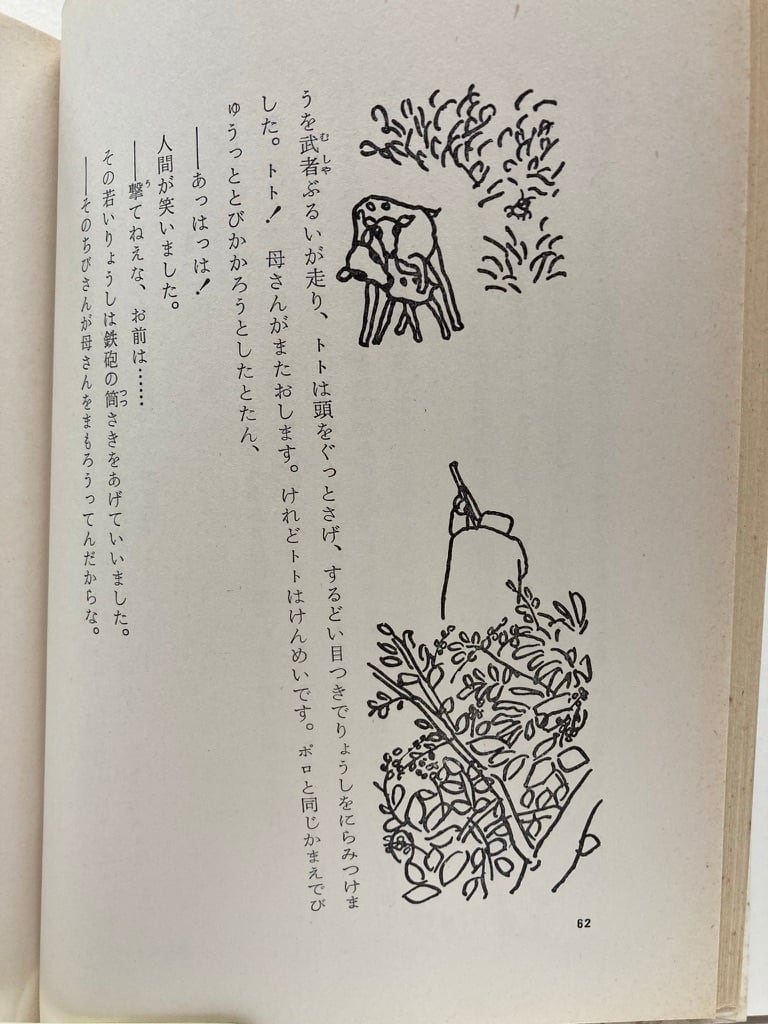 うを武者ぶるいが走り、トトは頭をぐっとさげ、するどい目つきでりょうしをにらみつけま
した。トト！　母さんがまたおします。けれどトトはけんめいです。ポロと同じかまえでび
ゅうっととびかかろうとしたとたん、
――あっはっは！
人間が笑いました。
――撃てねえな、お前は……
その若いりょうしは鉄砲の筒さきをあげていいました。
――そのちびさんが母さんをまもろうってんだからな。
62